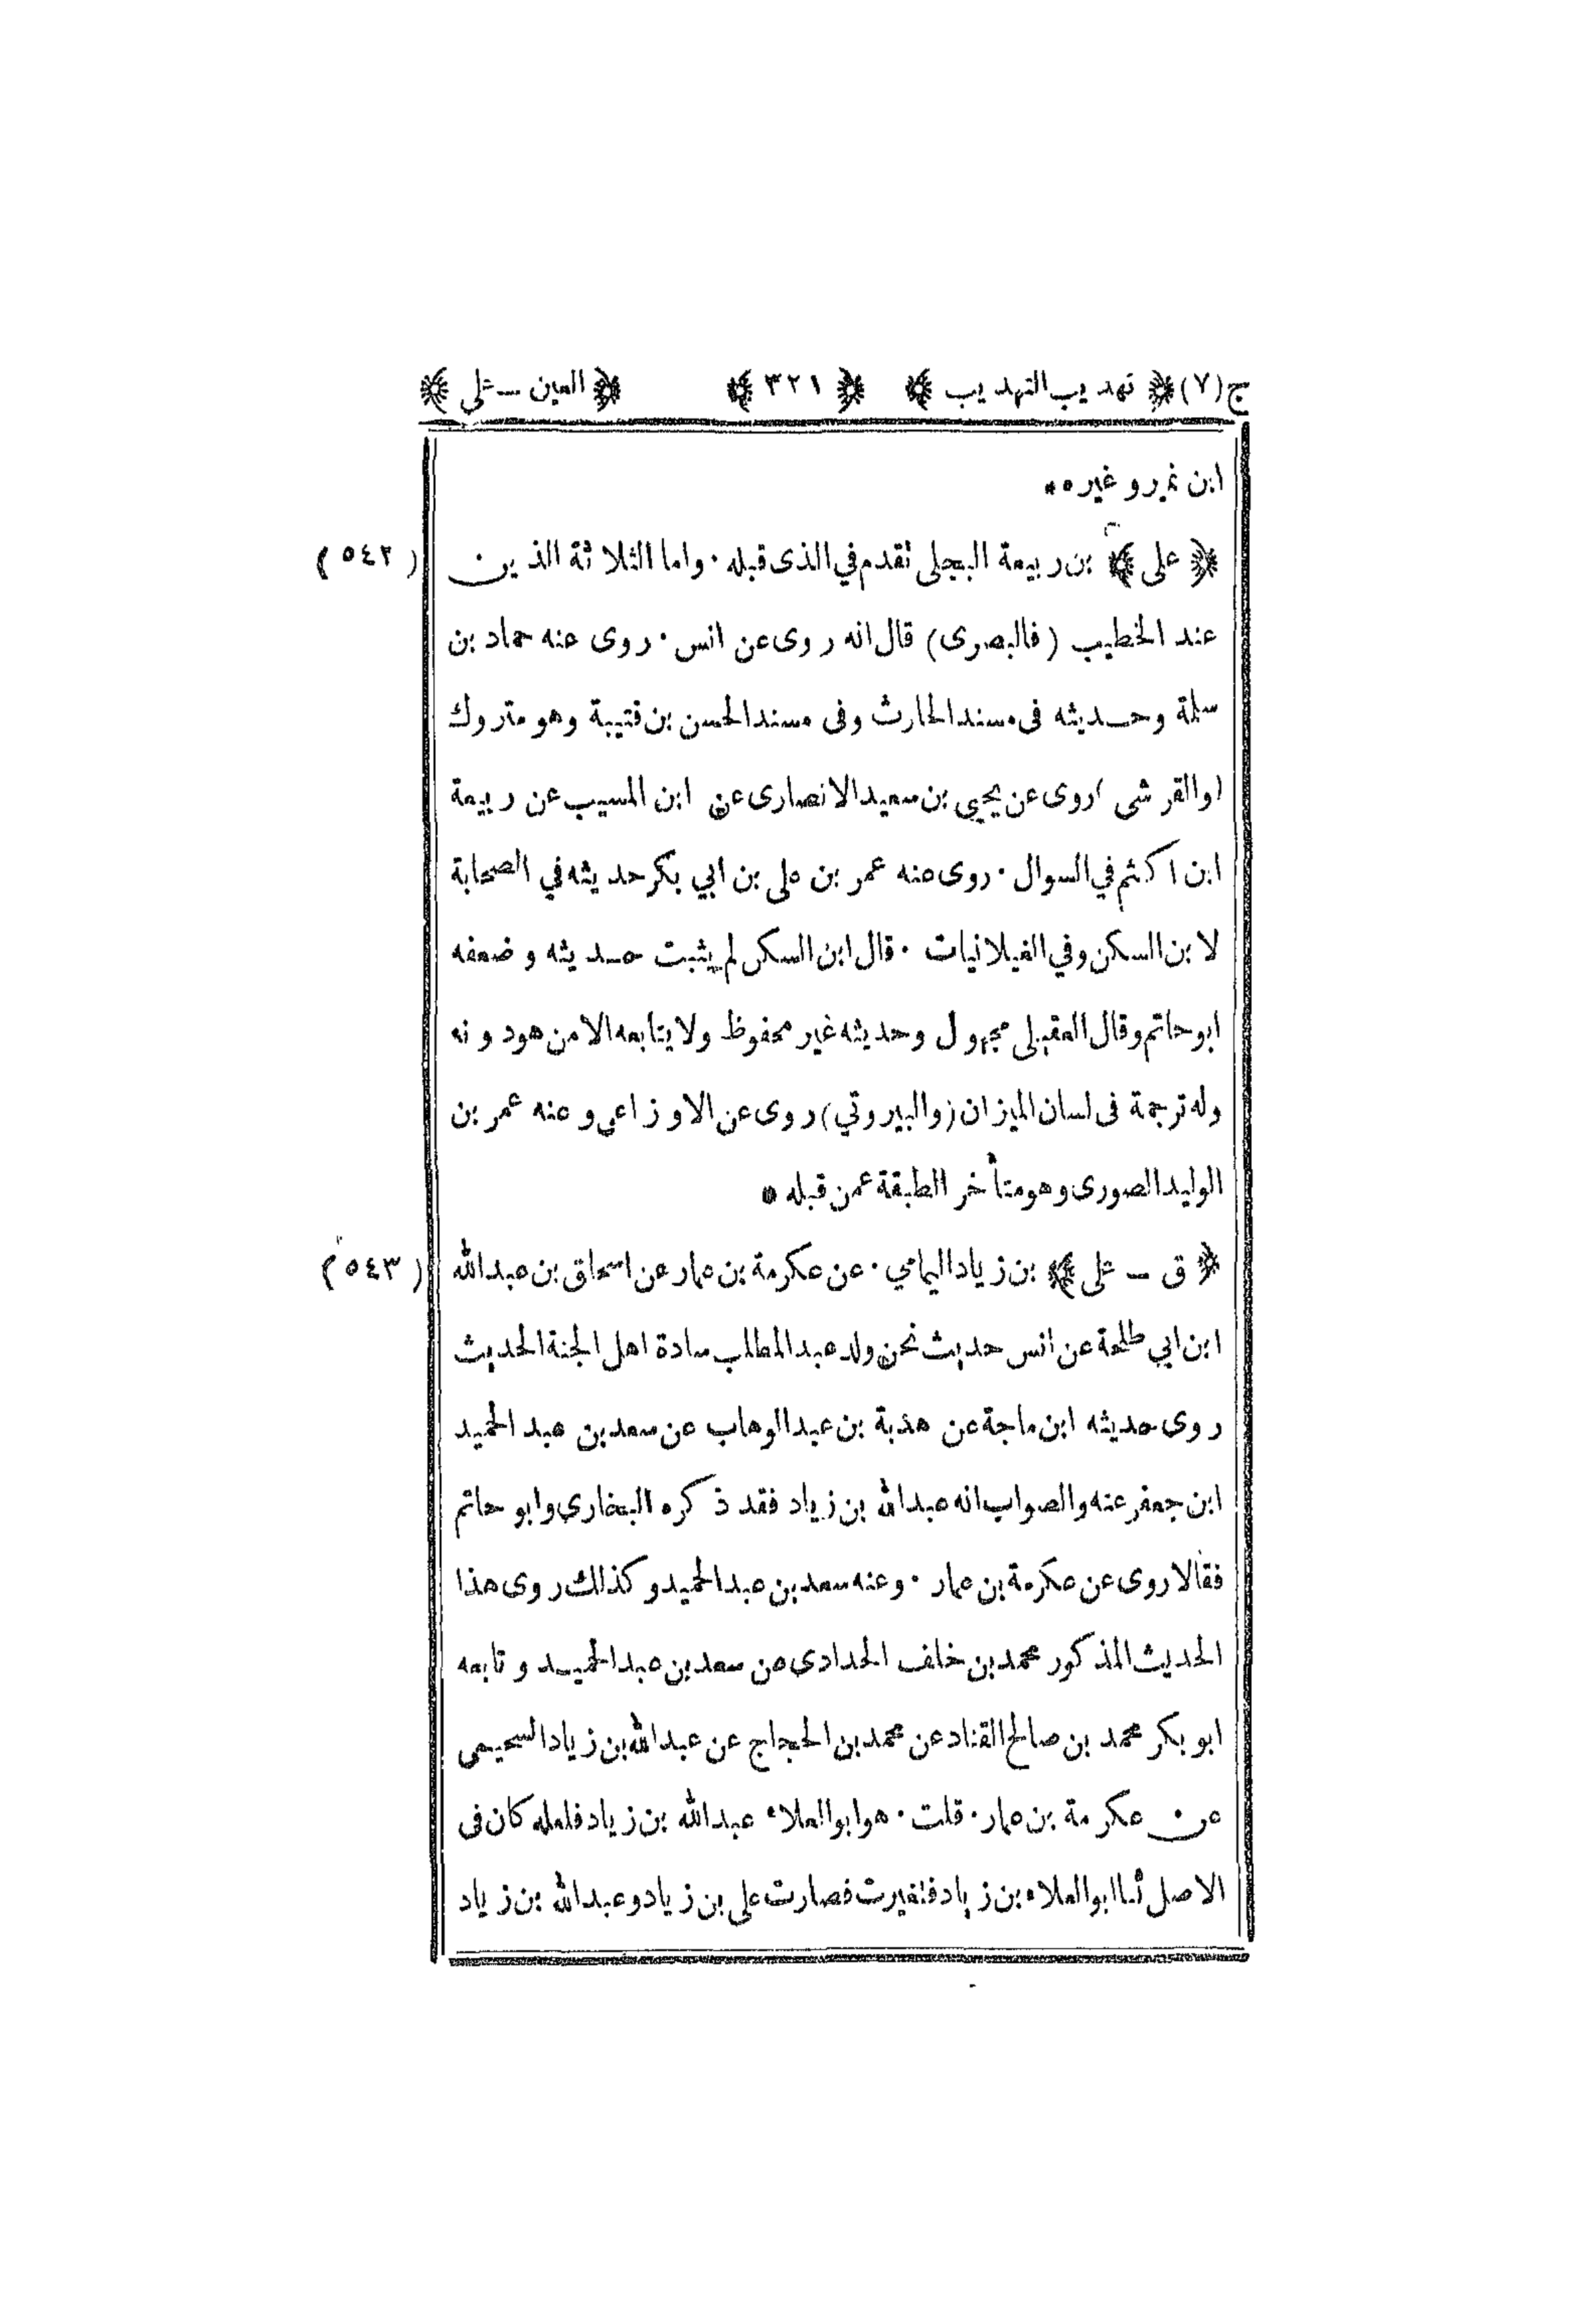 ج (٧) ﴿ تهذيب التهذيب ﴾ ﴿ ٣٢١ ﴾ ﴿ العين – على ﴾
ابن نمير وغيره *
﴿ على ﴾ بن ربيعة البجلى تقدم في الذى قبله . واما الثلاثة الذين ( ٥٤٢ )
عند الخطيب ( فالبصرى ) قال انه روى عن انس . روى عنه حماد بن
سلمة وحديثه فى مسند الحارث وفى مسند الحسن بن قتيبة وهو متروك
( والقرشى ) روى عن يحيى بن سعيد الانصارى عن ابن المسيب عن ربيعة
ابن اكثم في السوال . روى عنه عمر بن على بن ابي بكر حديثه في الصحابة
لابن السكن وفي الغيلانيات . قال ابن السكن لم يثبت حديثه وضعفه
ابو حاتم وقال العقيلى مجهول وحديثه غير محفوظ ولا يتابعه الا من هو دونه
وله ترجمة فى لسان الميزان ( والبيروتي ) روى عن الاوزاعي وعنه عمر بن
الوليد الصورى وهو متأخر الطبقة عمن قبله *
﴿ ق – على ﴾ بن زياد اليمامي . عن عكرمة بن عمار عن اسحاق بن عبدالله ( ٥٤٣ )
ابن ابي طلحة عن انس حديث نحن ولد عبد المطلب سادة اهل الجنة الحديث
روى حديثه ابن ماجة عن هدبة بن عبد الوهاب عن سعد بن عبد الحميد
ابن جعفر عنه والصواب انه عبدالله بن زياد فقد ذكره البخارى وابو حاتم
فقالا روى عن عكرمة بن عمار . وعنه سعد بن عبد الحميد وكذلك روى هذا
الحديث المذكور محمد بن خلف الحدادى عن سعد بن عبد الحميد وتابعه
ابو بكر محمد بن صالح القناد عن محمد بن الحجاج عن عبدالله بن زياد السحيمى
عن عكرمة بن عمار . قلت . هو ابو العلاء عبدالله بن زياد فلعله كان فى
الاصل ثنا ابو العلاء بن زياد فتغيرت فصارت على بن زياد وعبدالله بن زياد